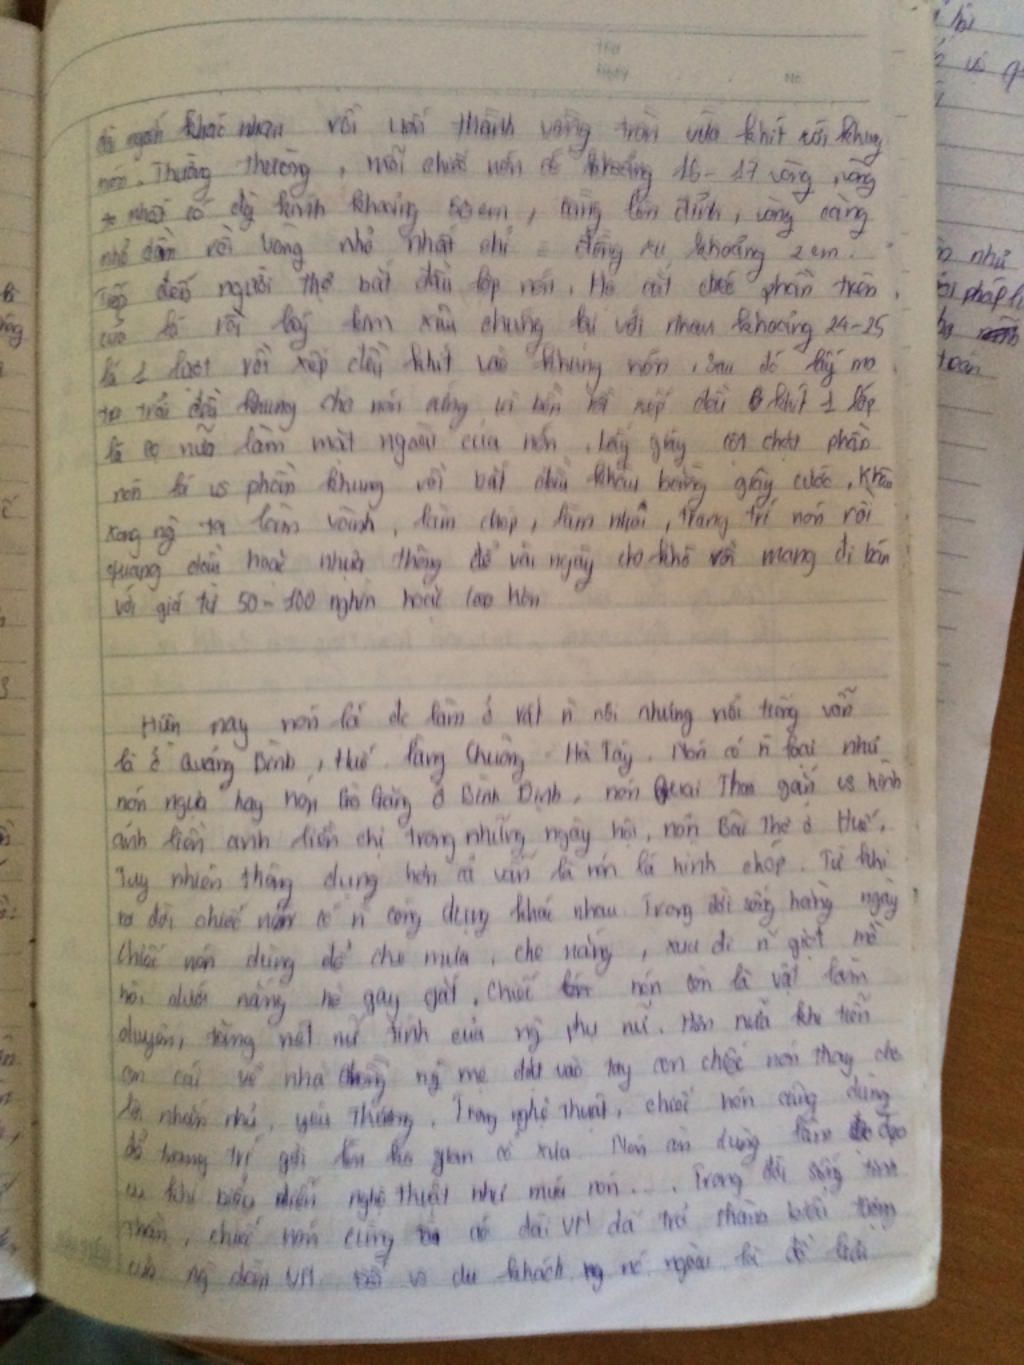 Thứ
Ngày No
khác nhau rồi uốn thành vòng tròn vừa khít với khung
nón. Thường thường, mỗi chiếc nón có khoảng 16 - 17 vòng, vòng
to nhất có độ kính khoảng 50 cm, càng lên đỉnh, vòng càng
nhỏ dần rồi vòng nhỏ nhất chỉ = đồng xu khoảng 2 cm.
Tiếp đến người thợ bắt đầu lợp nón. Họ cắt chéo phần trên
của lá rồi lấy kim xâu chúng lại với nhau khoảng 24-25
lá 1 lượt rồi xếp đều khít vào khung nón, sau đó lấy mo
tre trải đều khung cho nón cứng và bền rồi xếp đều khít 1 lớp
lá cọ nữa làm mặt ngoài của nón. Lấy giây cột chặt phần
nón lá vs phần khung rồi bắt đầu khâu bằng giây cước. Khâu
xong ng ta làm vành, làm chóp, làm nhôi, trang trí nón rồi
quang dầu hoặc nhựa thông để vài ngày cho khô rồi mang đi bán
với giá từ 50 - 100 nghìn hoặc cao hơn
Hiện nay nón lá đc làm ở rất n nơi nhưng nổi tiếng vẫn
là ở Quảng Bình, Huế, làng Chuông - Hà Tây. Nón có n loại như
nón ngựa hay nón Gò Găng ở Bình Định, nón Quai Thao gắn vs hình
ảnh liền anh liền chị trong những ngày hội, nón Bài Thơ ở Huế.
Tuy nhiên thông dụng hơn cả vẫn là nón lá hình chóp. Từ khi
ra đời chiếc nón có n công dụng khác nhau. Trong đời sống hàng ngày
chiếc nón dùng để che mưa, che nắng, xua đi n giọt mồ
hôi dưới nắng hè gay gắt. Chiếc nón còn là vật làm
duyên, tăng nét nữ tính của ng phụ nữ. Hơn nữa khi tiễn
con gái về nhà chồng ng mẹ đặt vào tay con chiếc nón thay cho
lời nhắn nhủ, yêu thương. Trong nghệ thuật, chiếc nón cũng dùng
để trang trí gợi lên cổ xưa. Nón còn dùng làm đạo
cụ khi biểu diễn nghệ thuật như múa nón.... Trong đời sống tinh
thần, chiếc nón cùng áo dài VN đã trở thành biểu tượng
của ng dân VN. Đối vs du khách ng nc ngoài là để